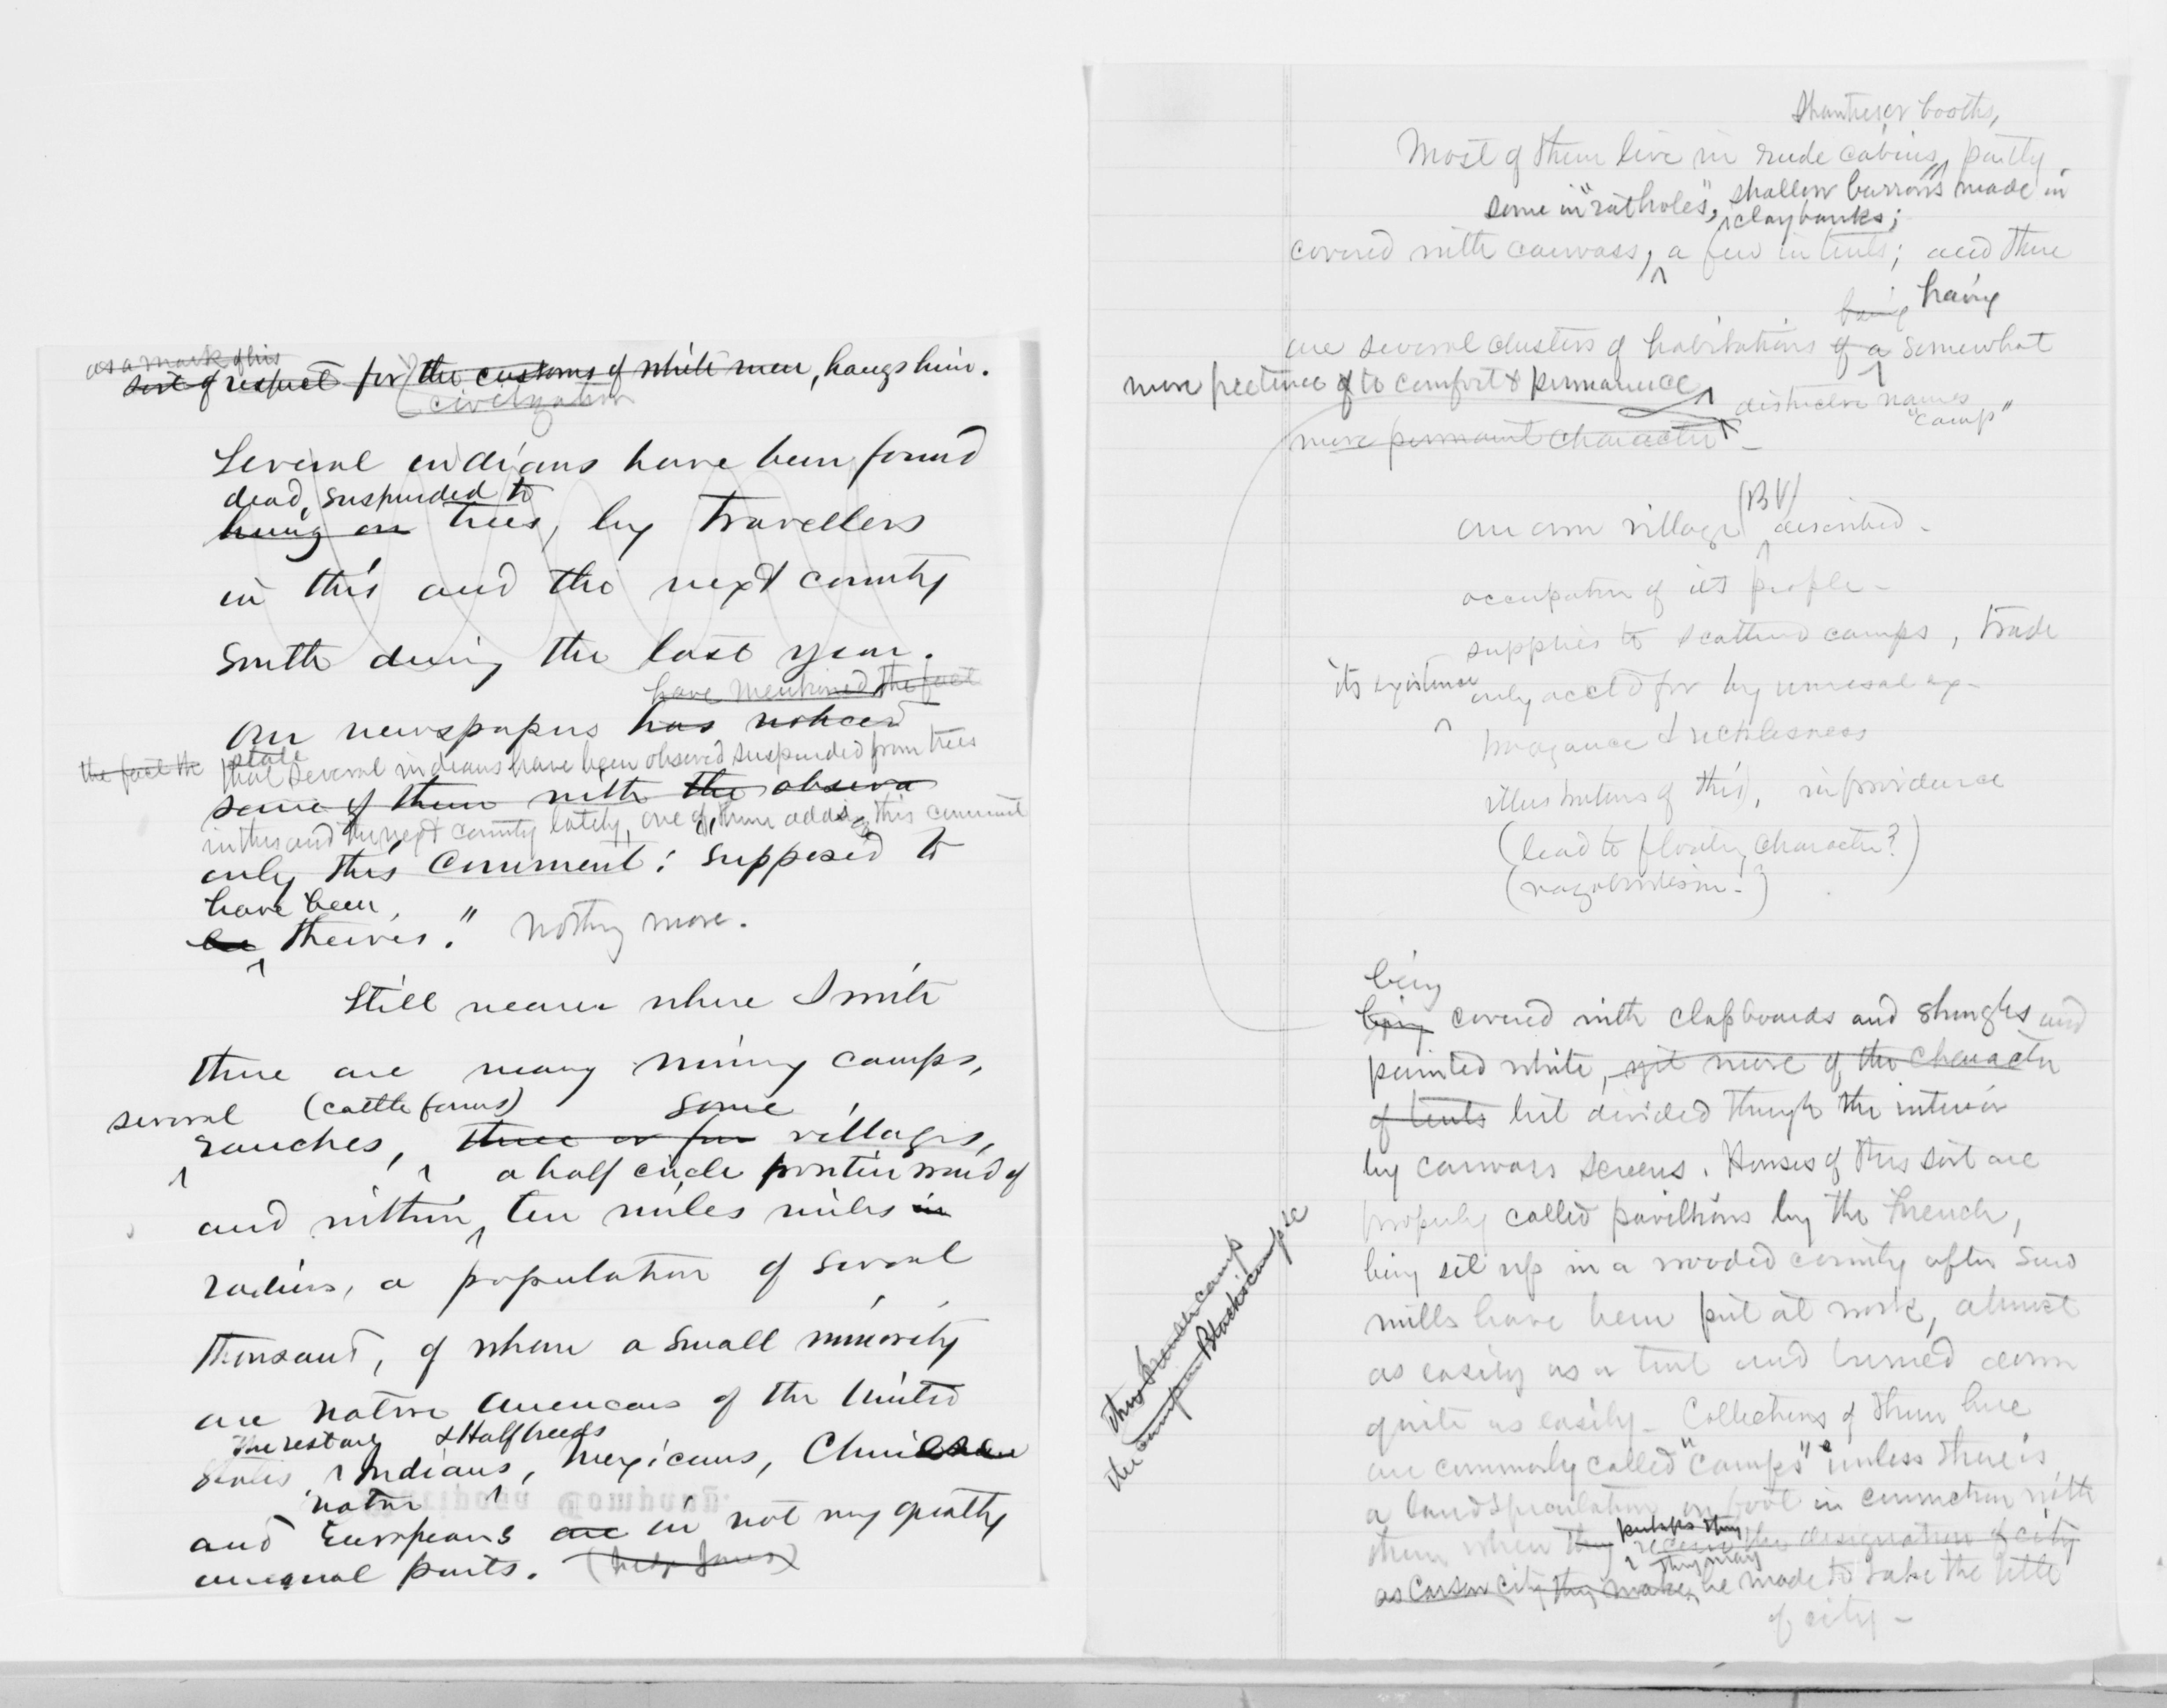 as a mark of his
sort of respect for the customs of white men, hangs him.
civilization
Several indians have been found
dead, suspended to
hung on trees, by travellers
in this and the next county
South during the last year.
have mentioned the fact
Our newspapers has noticed
state
the fact the that several indians have been observed suspended from trees
some of them with the observa
in this and the next county lately, one of them adding this comment
only this comment: supposed to
have been
be theives." Nothing more.
Still nearer where I write
there are many mining camps,
several (cattle farms) some
ranches, three or four villages,
a half circle frontier ward of
and within ten miles miles in
radius, a population of several
thousand, of whom a small minority
are native Americans of the United
The rest are & Half breeds
States, Indians, Mexicans, Chinese
native
and Europeans are in not very greatly
unequal parts.
Shanties or booths,
Most of them live in rude cabins, partly
some in "ratholes", shallow burrows made in
claybanks;
covered with canvass, a few in tents; and there
being having
are several clusters of habitations of a somewhat
more pretence of to comfort & permanence
distinctive names
"camp"
more permanent character -
(BV)
our own village described -
occupation of its people -
supplies to scattered camps, trade
its existence only acctd for by unusual ex-
travagance & recklesness
illustrations of this, improvidence
(lead to floating character?)
(vagabondism-?)
being
being covered with clapboards and shingles and
painted white, yet more of the character
of tents but divided though the interior
by canvass screens. Houses of this sort are
properly called pavillions by the French,
being set up in a wooded county after saw
mills have been put at work, almost
as easily as a tent and burned down
quite as easily - Collections of them here
are commonly called "camps" unless there is
a land speculation on foot in connection with
perhaps they
them when they receive the designation of city
they may
as Carson City they make be made to take the title
of city -
the camp Blacks camp &c